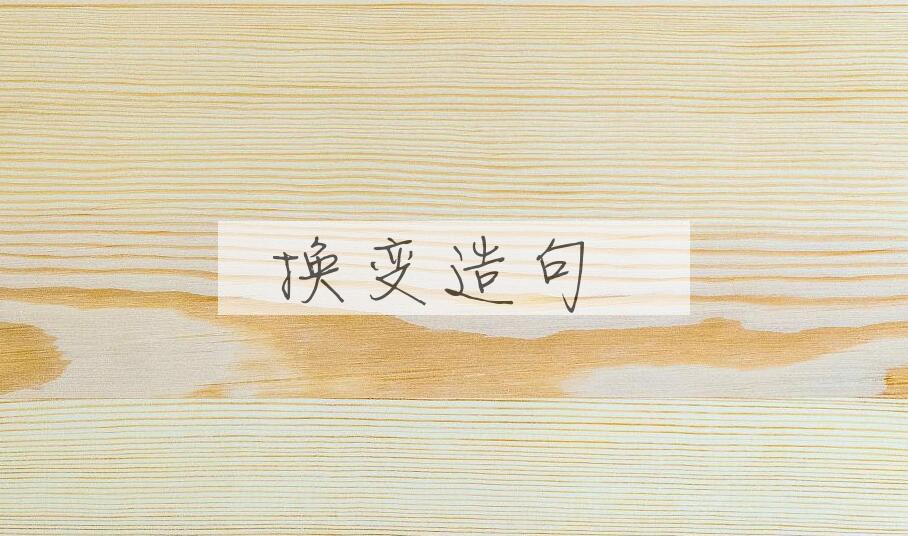 换变造句